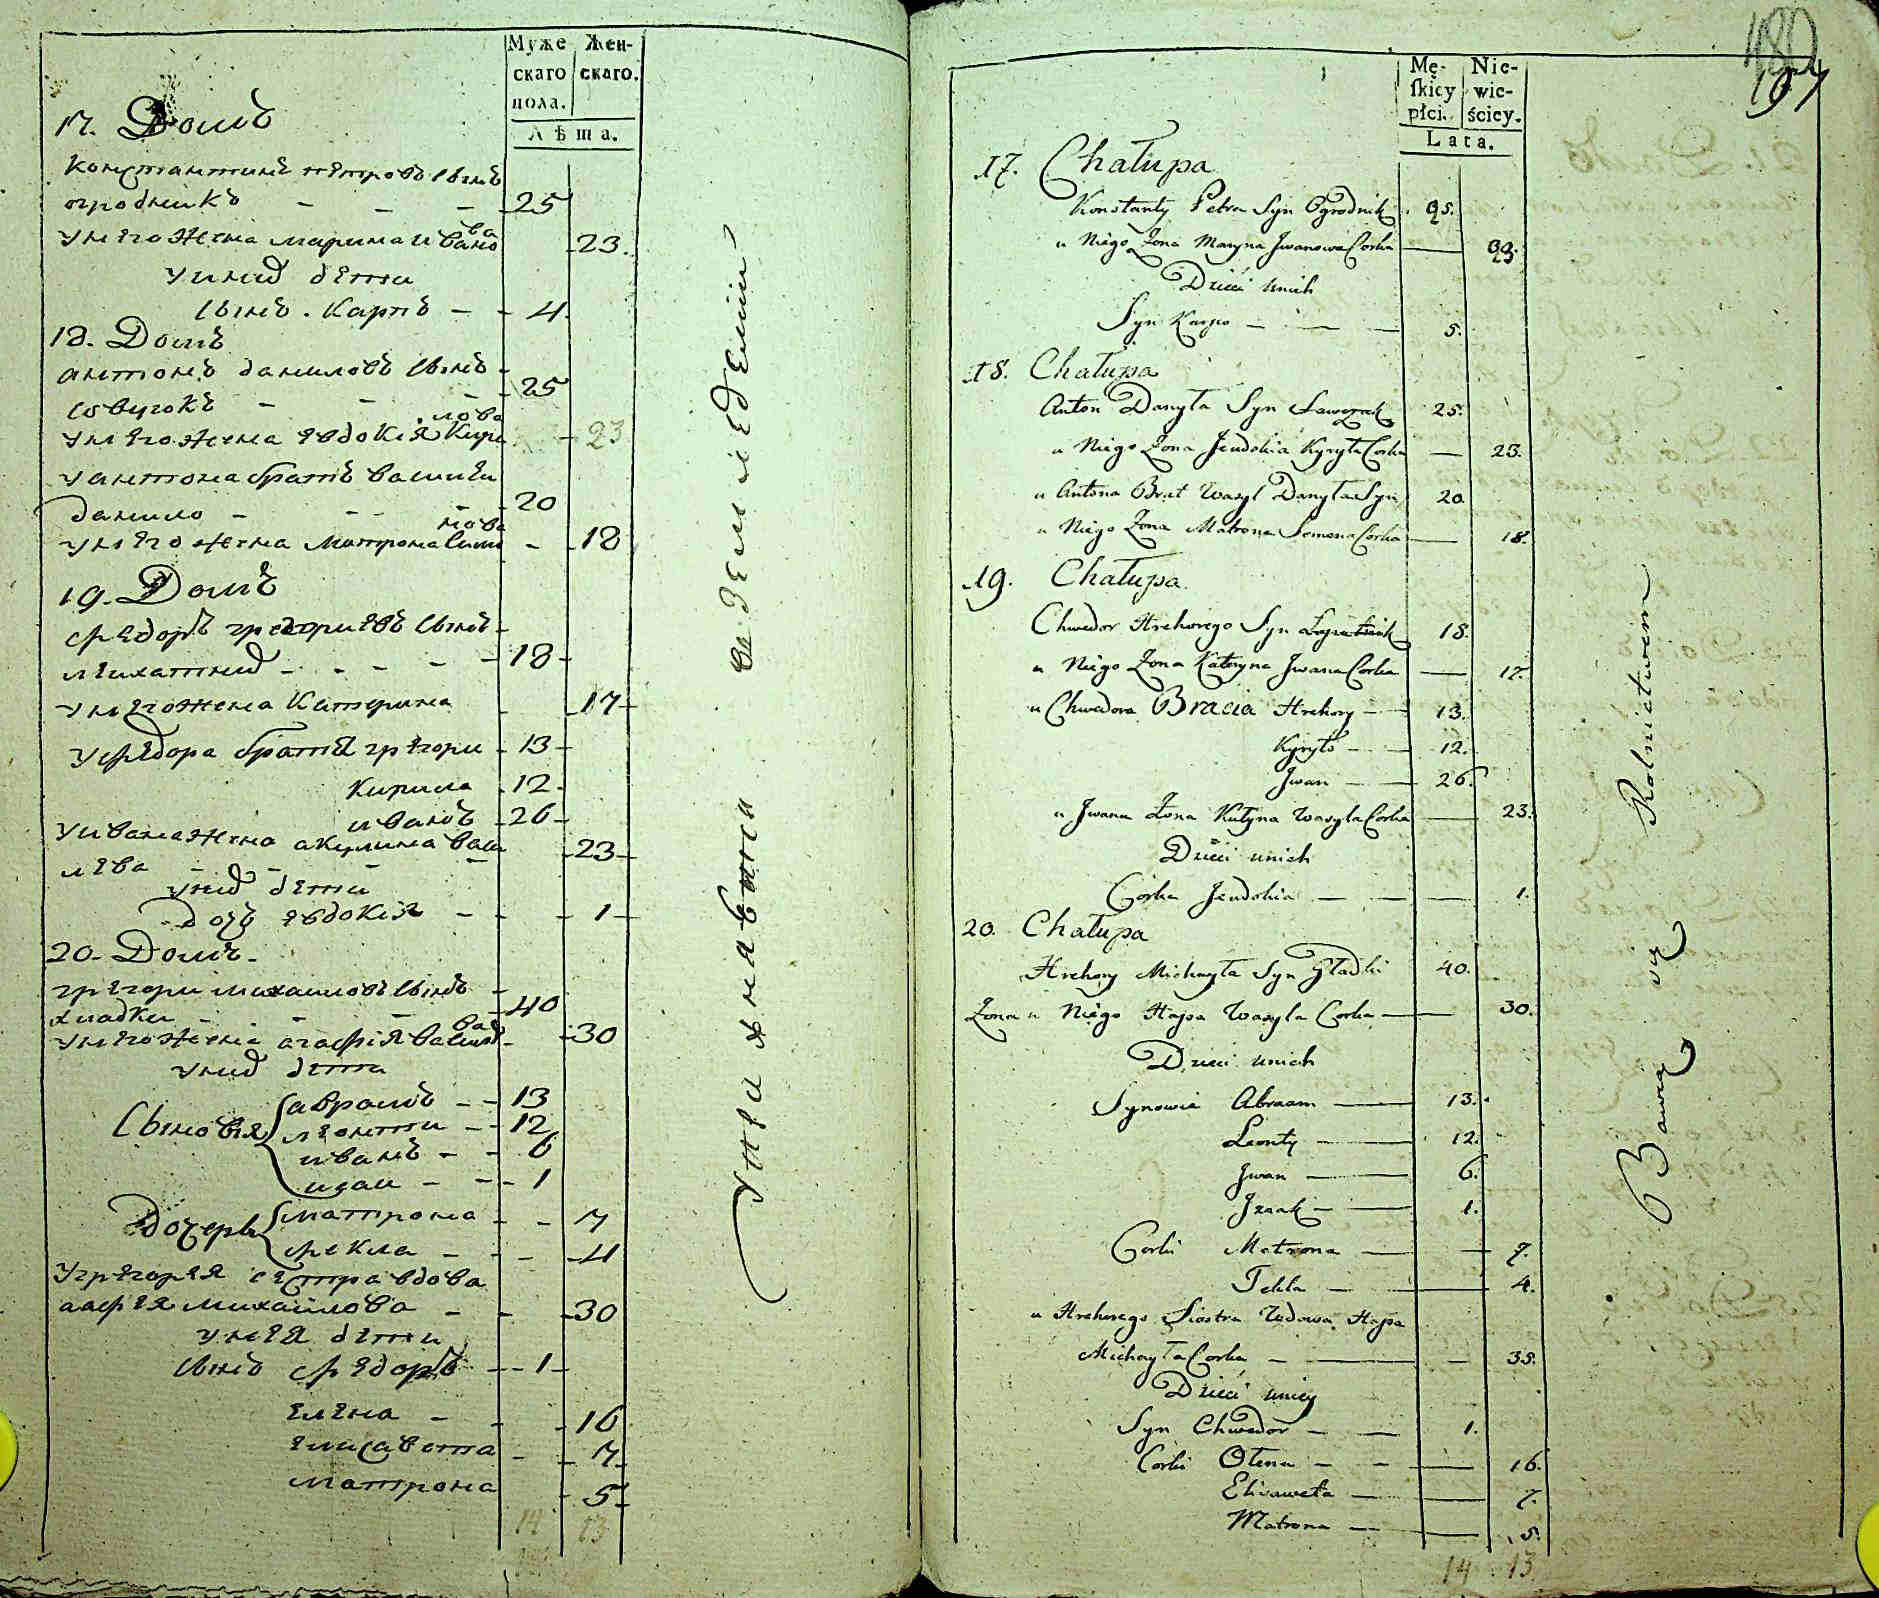 Муже
скаго
пола.
Жен-
скаго.
Лѣта.
17. Домъ
Константинъ петровъ сынъ
огродникъ - - - 25
у него жена марина ивано
ва 23.
у нихъ дети
сынъ. Карпъ - - 4.
18. Домъ
антонъ даниловъ сынъ -
- - - 25
у него жена евдокія Кири
лова - 23
у антона братъ василеи
данило - - - - 20
у него жена матрона Симо
нова - - 18
19. Домъ
федоръ григориевъ сынъ -
- - - - - 18 -
у него жена Катерина - - 17 -
у федора братья грегори - 13 -
Кирила - 12 -
иванъ - 26 -
у ивана жена акулина васи
лева - - - - 23 -
у нихъ дети
дочь евдокія - - - 1 -
20. Домъ -
грегори михаиловъ сынъ -
гладки - - - - 40
у него жена агафія василе
ва - - 30
у нихъ дети
Сыновья
аврамъ - - 13
леонти - - 12
иванъ - - 6
исаи - - - 1
дочери
матрона - - 7
фекла - - - 4
у грегорея сестра вдова
агафея михаилова - - - 30
у нея дети
сынъ федоръ - - 1 -
елена - - - 16
елисавета - - 7
матрона - 5
14 13
земледелии
Mę-
skiey
płci.
Nie-
wie-
ściey.
Lata.
180
197
17. Chałupa
Konstanty Petra Syn Ogrodnik. 25.
u Niego Żona Maryna Jwanowa Corka — 23.
Dzieci unich
Syn Karpo — — — 5.
18. Chałupa
Anton Danyła Syn Sawczak 25.
u Niego Żona Jeudokia Kyryła Corka — 23.
u Antona Brat Wasyl Danyła Syn 20.
u Niego Żona Matrona Semena Corka — 18.
19. Chałupa
Chwedor Hrehorego Syn 18.
u Niego Żona Kateryna Jwana Corka — 17.
u Chwedora Bracia Hrehory — 13.
Kyryło — — 12.
Jwan — — 26.
u Jwana Żona Kulyna Wasyla Corka — 23.
Dzieci unich
Corka Jeudokia — — — 1.
20. Chałupa
Hrehory Michayła Syn Gładki 40.
Żona u Niego Hapa Wasyla Corka — — 30.
Dzieci unich
Synowie Abraam — 13.
Leonty — 12.
Jwan — 6.
Jzaak — 1.
Corki Matrona — — 7.
Tekla — — 4.
u Hrehorego Siostra Wdowa Hapa
Michayła Corka — — — 35.
Dzieci uniey
Syn Chwedor — — 1.
Corki Olena — — — 16.
Elizaweta — — 7.
Matrona — — 5.
14 13
Bawią się Rolnictwem